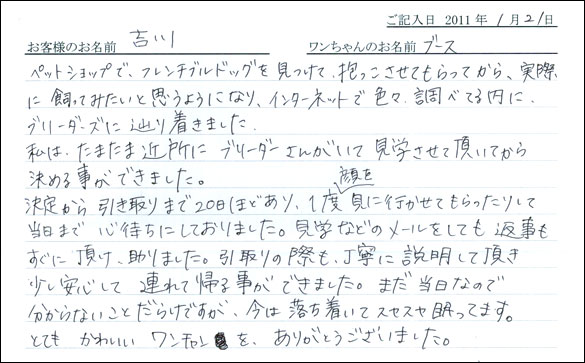 ご記入日 2011年 1月21日
お客様のお名前 吉川 ワンちゃんのお名前 ブース
ペットショップで、フレンチブルドッグを見つけて、抱っこさせてもらってから、実際
に飼ってみたいと思うようになり、インターネットで色々調べてる内に、
ブリーダーズに辿り着きました。
私は、たまたま近所にブリーダーさんがいて見学させて頂いてから
決める事ができました。
決定から引き取りまで20日ほどあり、1度顔を見に行かせてもらったりして
当日まで心待ちにしておりました。見学などのメールをしても返事も
すぐに頂け、助りました。引取りの際も、丁寧に説明して頂き
少し安心して連れて帰る事ができました。まだ当日なので
分からないことだらけですが、今は落ち着いてスヤスヤ眠ってます。
とてもかわいいワンチャンを、ありがとうございました。